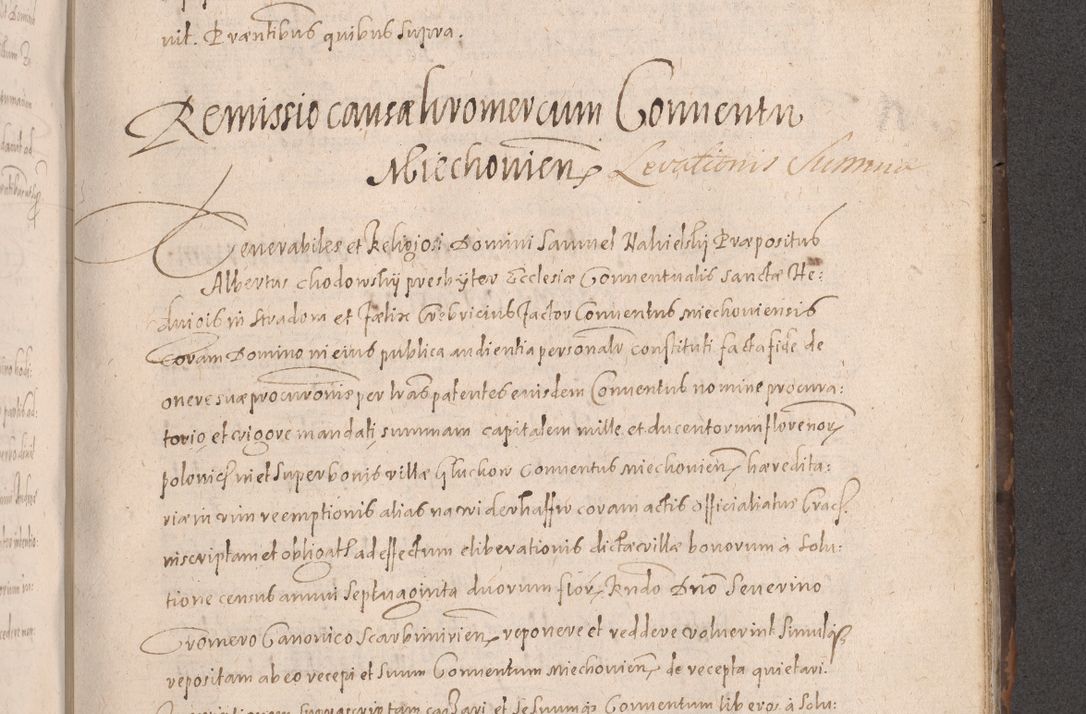 vit. Præntibus quibus supra.
Remissio causæ Kromer cum Conventu
Miechovien Levationis Summa
Venerabiles et Religiosi Domini Samuel Nahielskÿ Præpositus
Albertus Chodowskÿ presbÿter Ecclesiæ Conventualis Sanctæ He:
duigis in Stradom et Fælix Crebricius factor Conventus Miechoviensis
Coram Domino in eius publica audientia personalr constituti facta fide de
onere suæ procuronis per lras patentes eiusdem Conventus nomine procura:
torio, et vigore mandati, summam capitalem mille et ducentorum florenor
polonics in et super bonis villæ Gluchow Conventus Miechovien hæredita:
riæ in vim reemptionis alias na widerkaffw coram actis Officialiatus Crac.
inscriptam et obligats ad effectum eliberationis dictæ villæ bonorum à solu:
tione census annui septuaginta duorum flor. Rndo Dno Severino
Cromero Canonico Scarbimirien reponere et reddere voluerint Simulqs
repositam ab eo recepi et suum Conventum Miechovien de recepta quietari.
suprascriptam cassari et se suumqs Conventum liberos à solu: